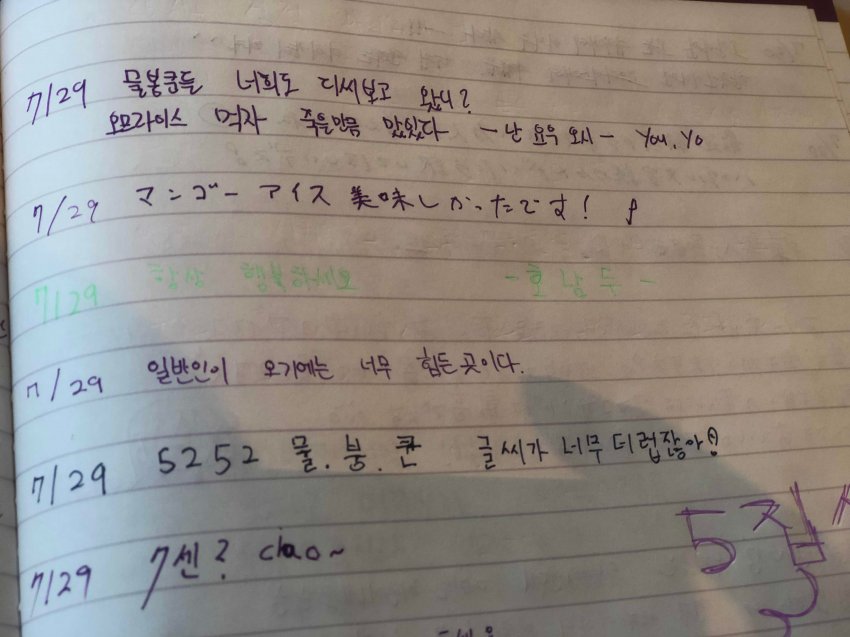 7/29 물붕쿤들 너희도 디씨보고 왔니?
오므라이스 먹자 죽을만큼 맜있다 -난 요우 오시- You.Yo
7/29 マンゴーアイス 美味しかったです!
7/29 항상 행복하세요 -호남두-
7/29 일반인이 오기에는 너무 힘든곳이다.
7/29 5252 물.붕.쿤 글씨가 너무 더럽잖아!
7/29 7센? ciao~
5점